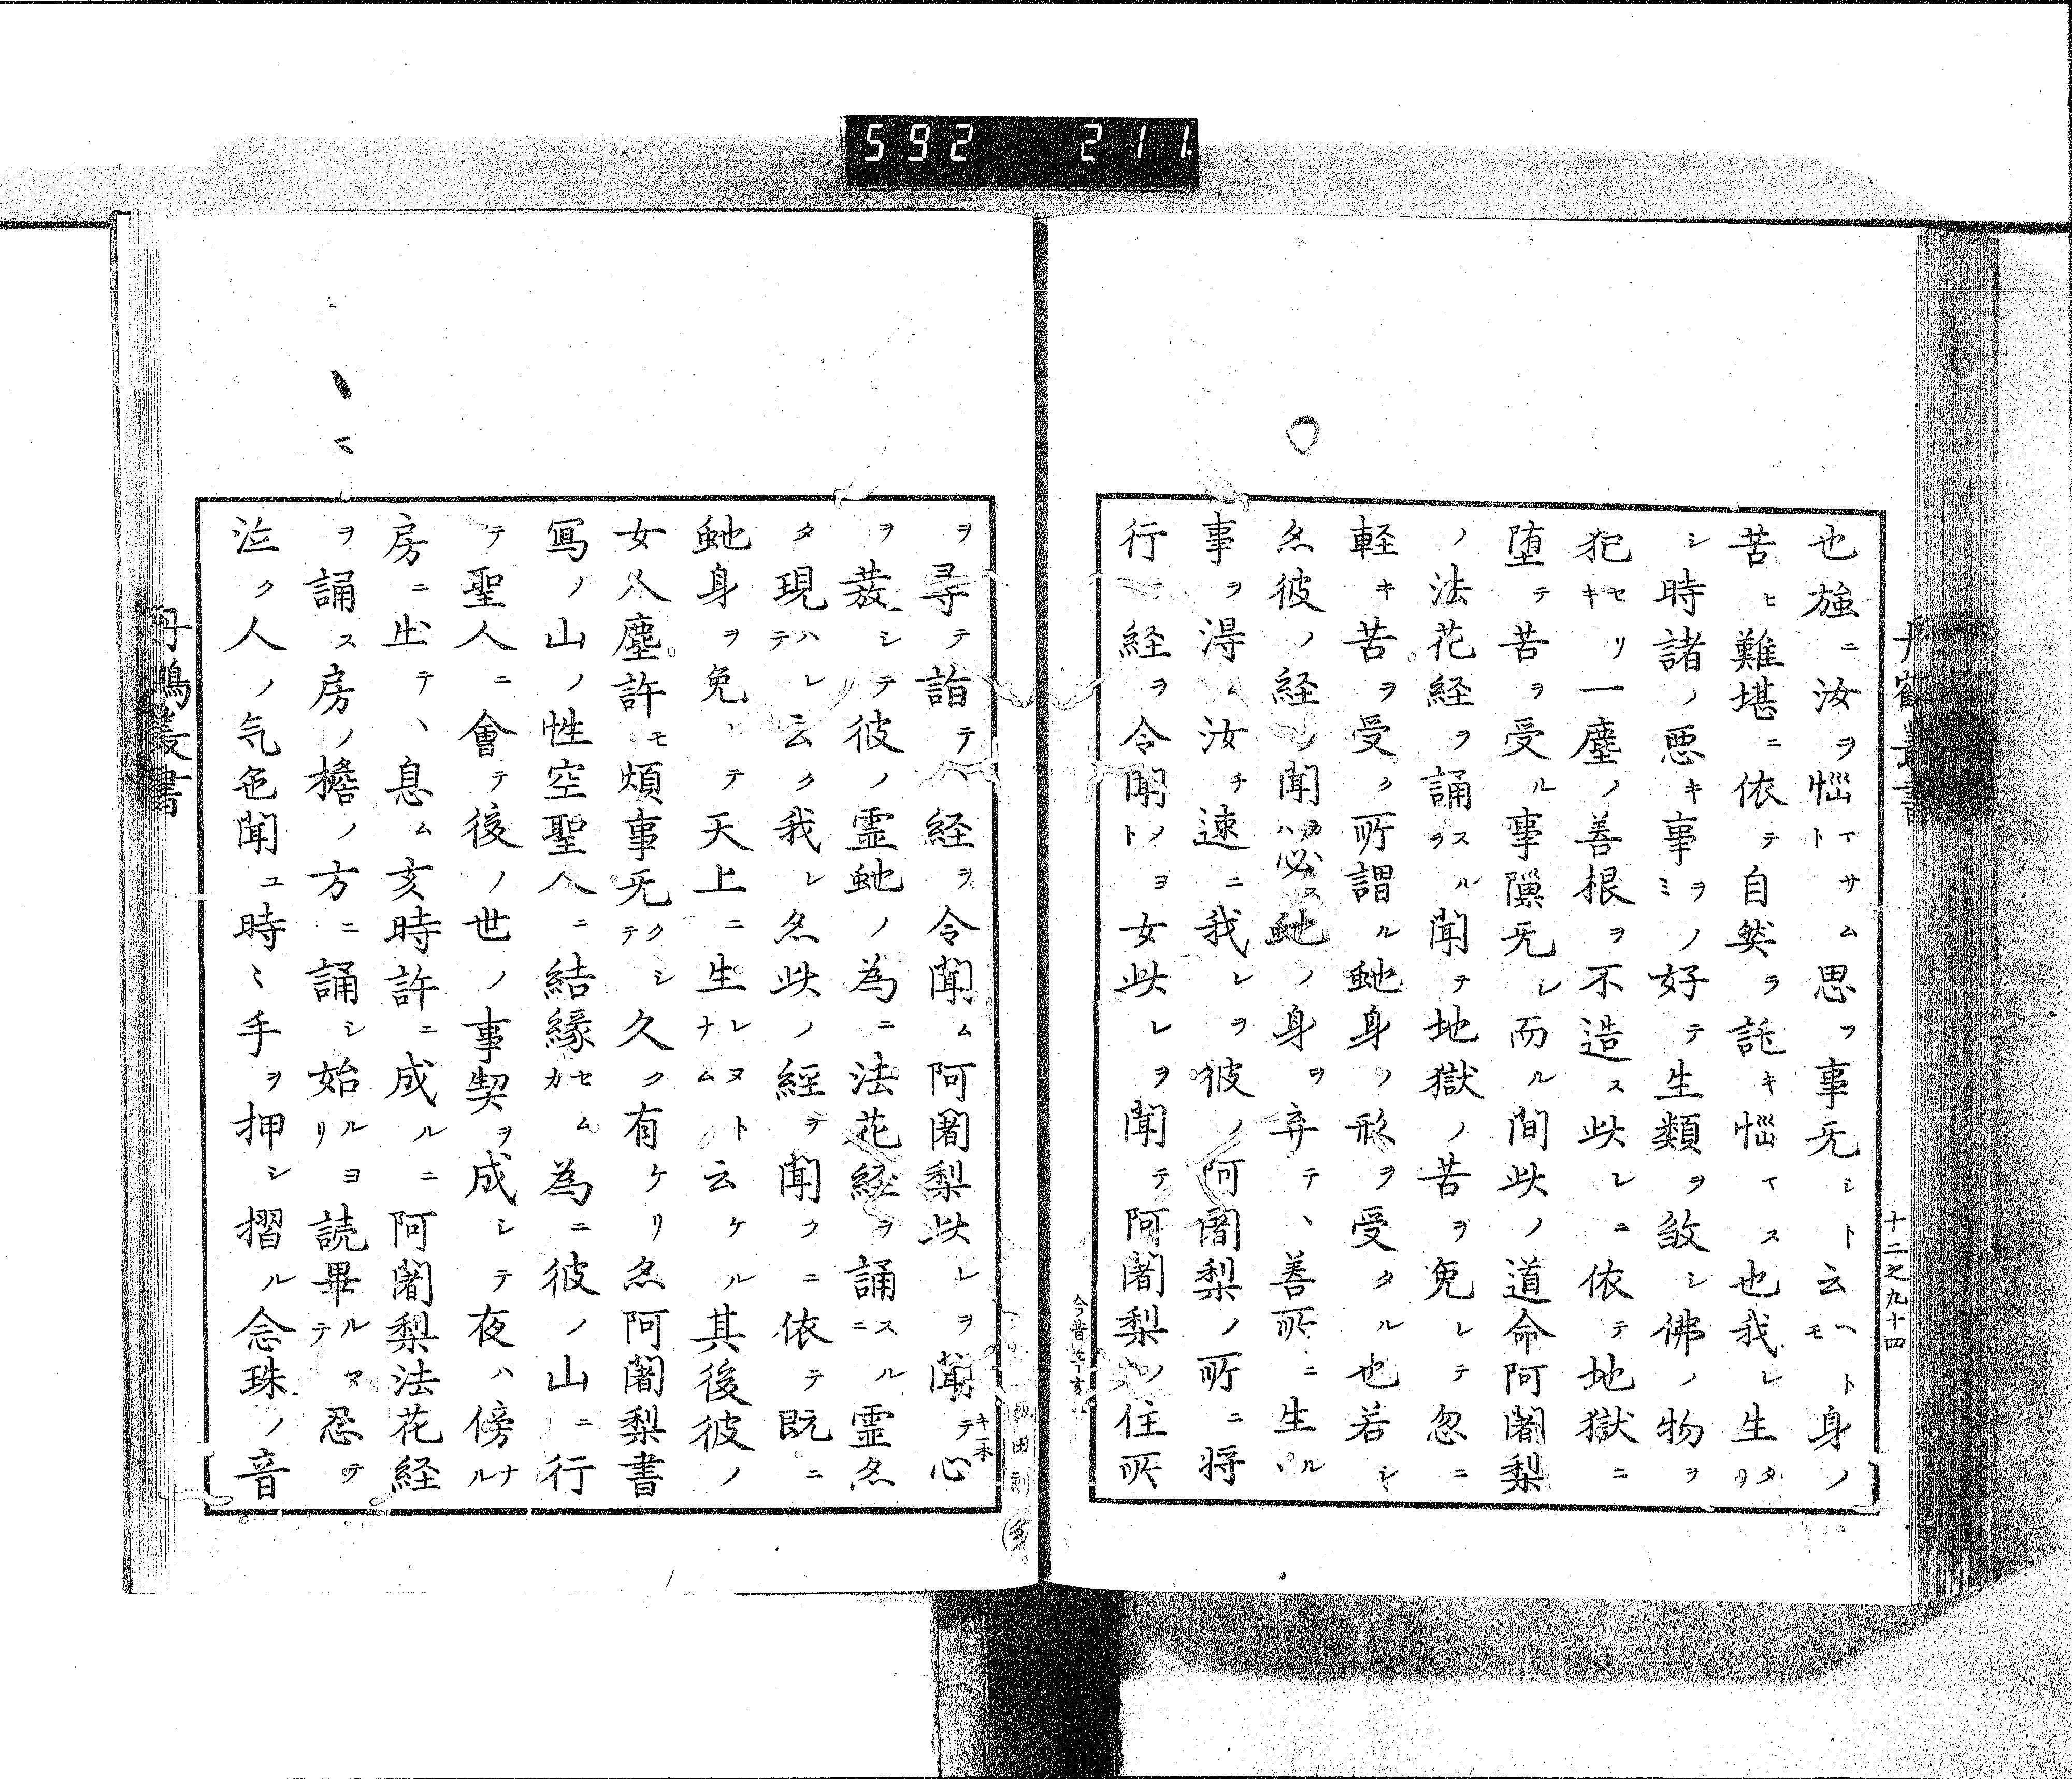 592 211
十二之九十四
也強ニ汝ヲ惱トイサム思フ事无シト云モヘト身ノ
苦ヒ難堪ニ依テ自然ラ託キ惱イス也我レ生タリ
シ時諸ノ悪キ事ヲミノ好テ生類ヲ敓シ佛ノ物ヲ
犯セキリ一塵ノ善根ヲ不造ス此レニ依テ地獄ニ
堕テ苦ヲ受ル事隟无シ而ル間此ノ道命阿闍梨
ノ法花経ヲ誦スヲル聞テ地獄ノ苦ヲ免レテ忽ニ
軽キ苦ヲ受ク所謂ル虵身ノ形ヲ受タル也若シ
尒彼ノ経ノ聞カハ必ス虵ノ身ヲ弃テヽ善所ニ生ル
事ヲ得ム汝チ速ニ我レヲ彼ノ阿闍梨ノ所ニ将
行テ経ヲ令聞トノヨ女此レヲ聞テ阿闍梨ノ住所
ヲ尋テ詣テヽ経ヲ令聞ム阿闍梨此レヲ聞キ一本テ心
ヲ發シテ彼ノ霊虵ノ為ニ法花経ヲ誦スニル霊尒
タ現ハテレ云ク我レ尒此ノ經ヲ聞クニ依テ既ニ
虵身ヲ免レテ天上ニ生レナヌムト云ケル其後彼ノ
女人塵許モ煩事无クテシ久ク有ケリ尒阿闍梨書
寫ノ山ノ性空聖人ニ結縁セカム為ニ彼ノ山ニ行
テ聖人ニ會テ後ノ世ノ事契ヲ成シテ夜ハ傍ナル
房ニ出テヽ息ム亥時許ニ成ルニ阿闍梨法花経
ヲ誦ス房ノ檐ノ方ニ誦シ始ルリヨ読畢ルテマ忍テ
泣ク人ノ気色聞ユ時ミ手ヲ押シ摺ル念珠ノ音
丹鶴叢書